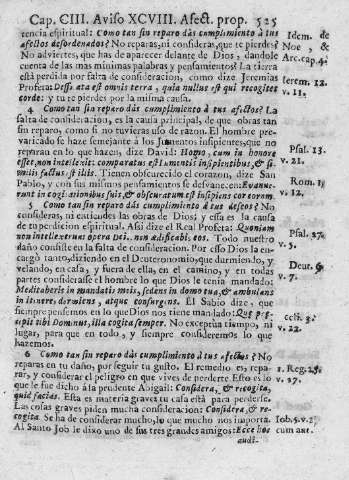 Cap. CIII. Aviso XCVIII. Afect. prop. 525
tencia espiritual: Como tan sin reparo dàs cumplimiento à tus
afectos desordenados? No reparas, ni consideras, que te pierdes?
No adviertes, que has de aparecer delante de Dios, dandole
cuenta de las mas minimas palabras y pensamientos? La tierra
està perdida por falta de consideracion, como dize Jeremias
Profeta: Dessolata est omnis terra, quia nullus est qui recogitet
corde: y tu te pierdes por la misma causa.
4 Como tan sin reparo dàs cumplimiento à tus afectos? La
falta de consideracion, es la causa principal, de que obras tan
sin reparo, como si no tuvieras uso de razon. El hombre pre-
varicado se haze semejante à los Jumentos insipientes, que no
reparan en lo que hazen, dize David: Homo, cum in honore
esset, non intelexit: comparatus est Jumentis insipientibus, & si-
milis factus est illis. Tienen obscurecido el corazon, dize San
Pablo, y con sus mismos pensamientos se desvanecen: Evanue-
runt in cogitationibus suis, & obscuratum est insipiens cor eorum.
5 Como tan sin reparo dàs cumplimiento à tus afectos? No
consideras, ni entiendes las obras de Dios; y essa es la causa
de tu perdicion espiritual. Asi dize el Real Profeta: Quoniam
non intellexerunt opera Dei, non adificabis eos. Todo nuestro
daño consiste en la falta de consideracion. Por esso Dios la en-
cargò tanto, diziendo en el Deuteronomio, que durmiendo, y
velando, en casa, y fuera de ella, en el camino, y en todas
partes considerasse el hombre lo que Dios le tenia mandado:
Meditaberis in mandatis meis, sedens in domo tua, & ambulans
in itinere, dormiens, atque consurgens. El Sabio dize, que
siempre pensemos en lo que Dios nos tiene mandado: Quæ præ-
cipit tibi Dominus, illa cogita semper. No exceptua tiempo, ni
lugar, para que en todo, y siempre consideremos lo que
hazemos.
6 Como tan sin reparo dàs cumplimiento à tus afectos? No
reparas en tu daño, por seguir tu gusto. El remedio es, repa-
rar, y considerar el peligro en que vives de perderte. Esto es lo
que le fue dicho à la prudente Abigail: Considera, & recogita,
quid facias. Esta es materia grave; tu casa està para perderse.
Las cosas graves piden mucha consideracion: Considera, & re-
cogita. Se ha de considerar mucho, lo que mucho nos importa.
Al Santo Job le dixo uno de sus tres grandes amigos: Ecce hoc
audi-
Idem. de
Noe, &
Arc. cap. 4.
Ierem. 12.
v. 11.
Psal. 13.
v. 21.
Rom. 1.
v. 12.
Psal. 27.
v. 5.
Deut. 6.
v. 7.
v. 22.
1. Reg. 25.
v. 17.
Iob. 5. v. 2.
cum ant.